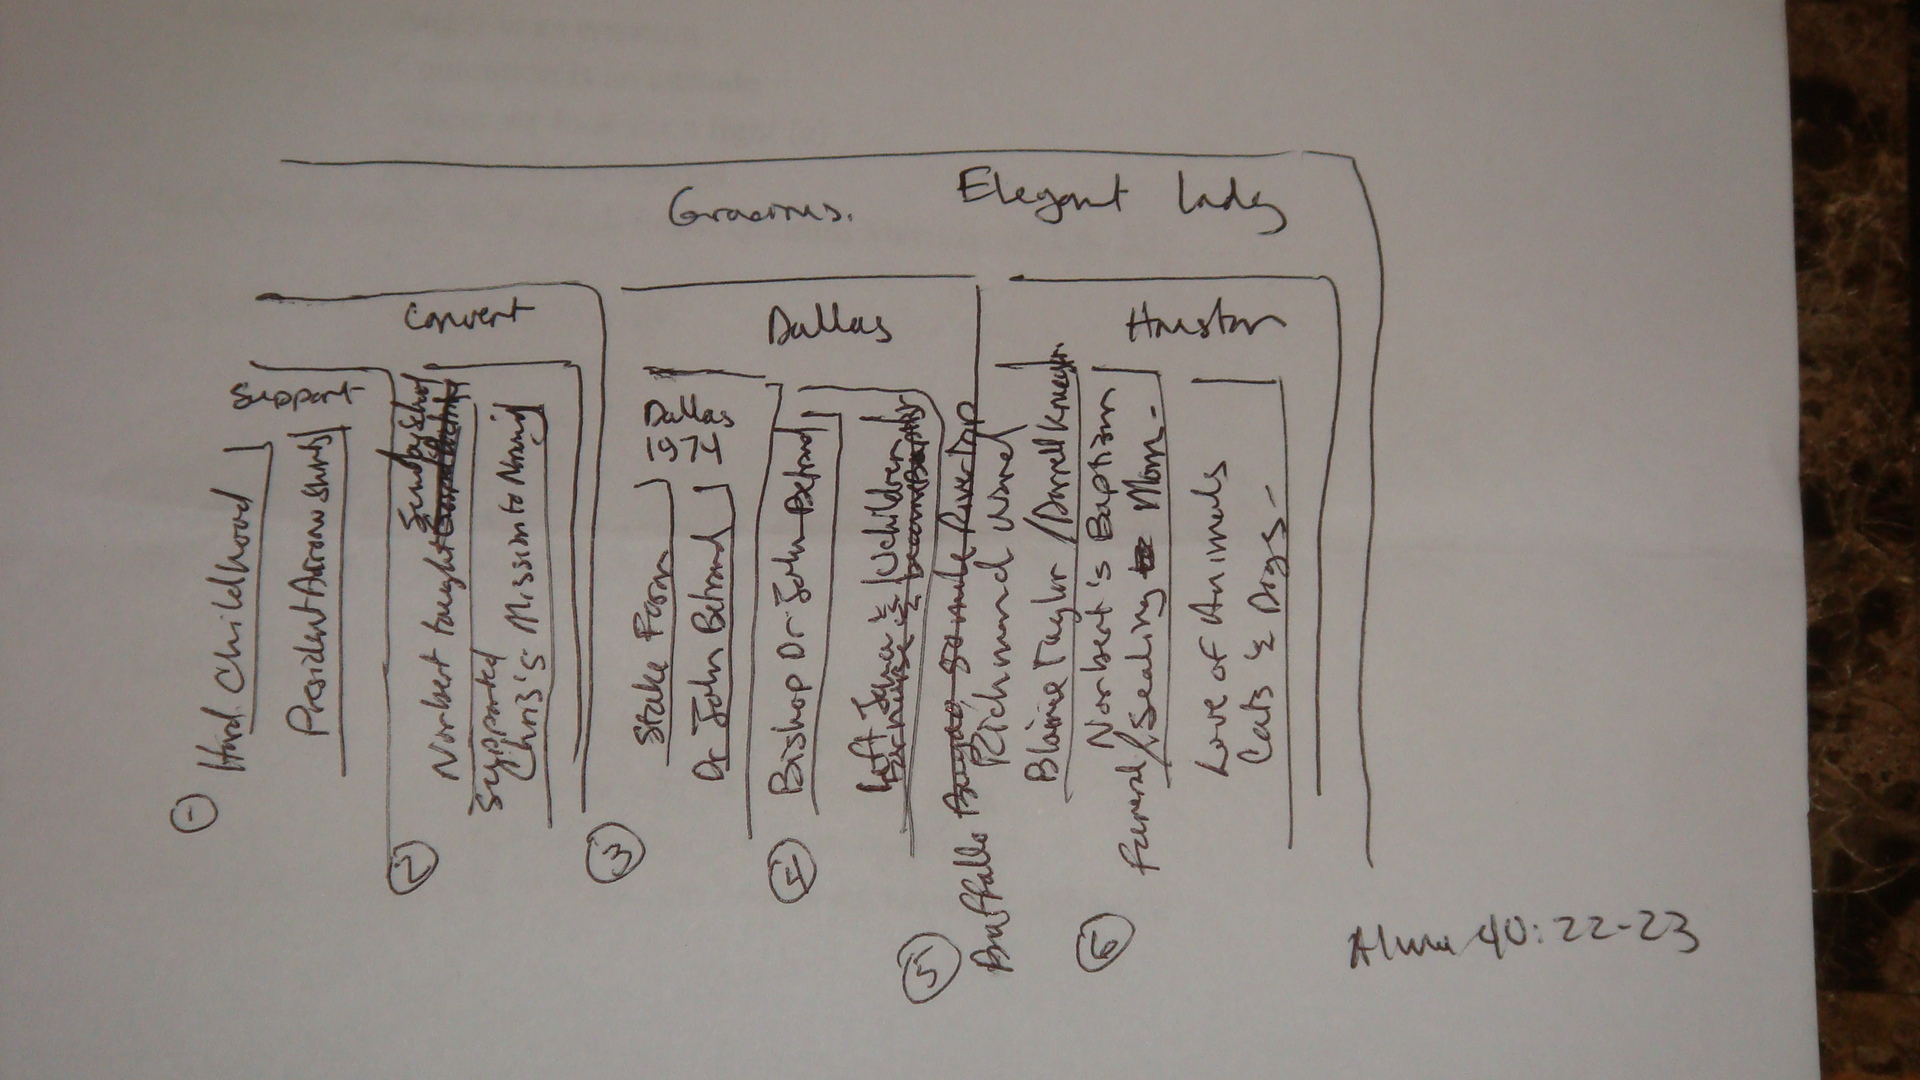 Gracious. Elegant Lady
Convert
Dallas
Houston
Support
① Hard Childhood
President Aaron
② Norbert taught Sunday School
Supported
Chris's Mission to Norway
③ Dallas
Stake Farm
Dr John Betrand
④ Bishop Dr John Betrand
Left James & children
⑤ Buffalo Bayou
Richmond Ward
Blaine Taylor / Darrell
⑥ Norbert's Baption
Funeral / Sealing to Mom -
Love of Animals
Cats & Dogs -
Alma 40:22-23